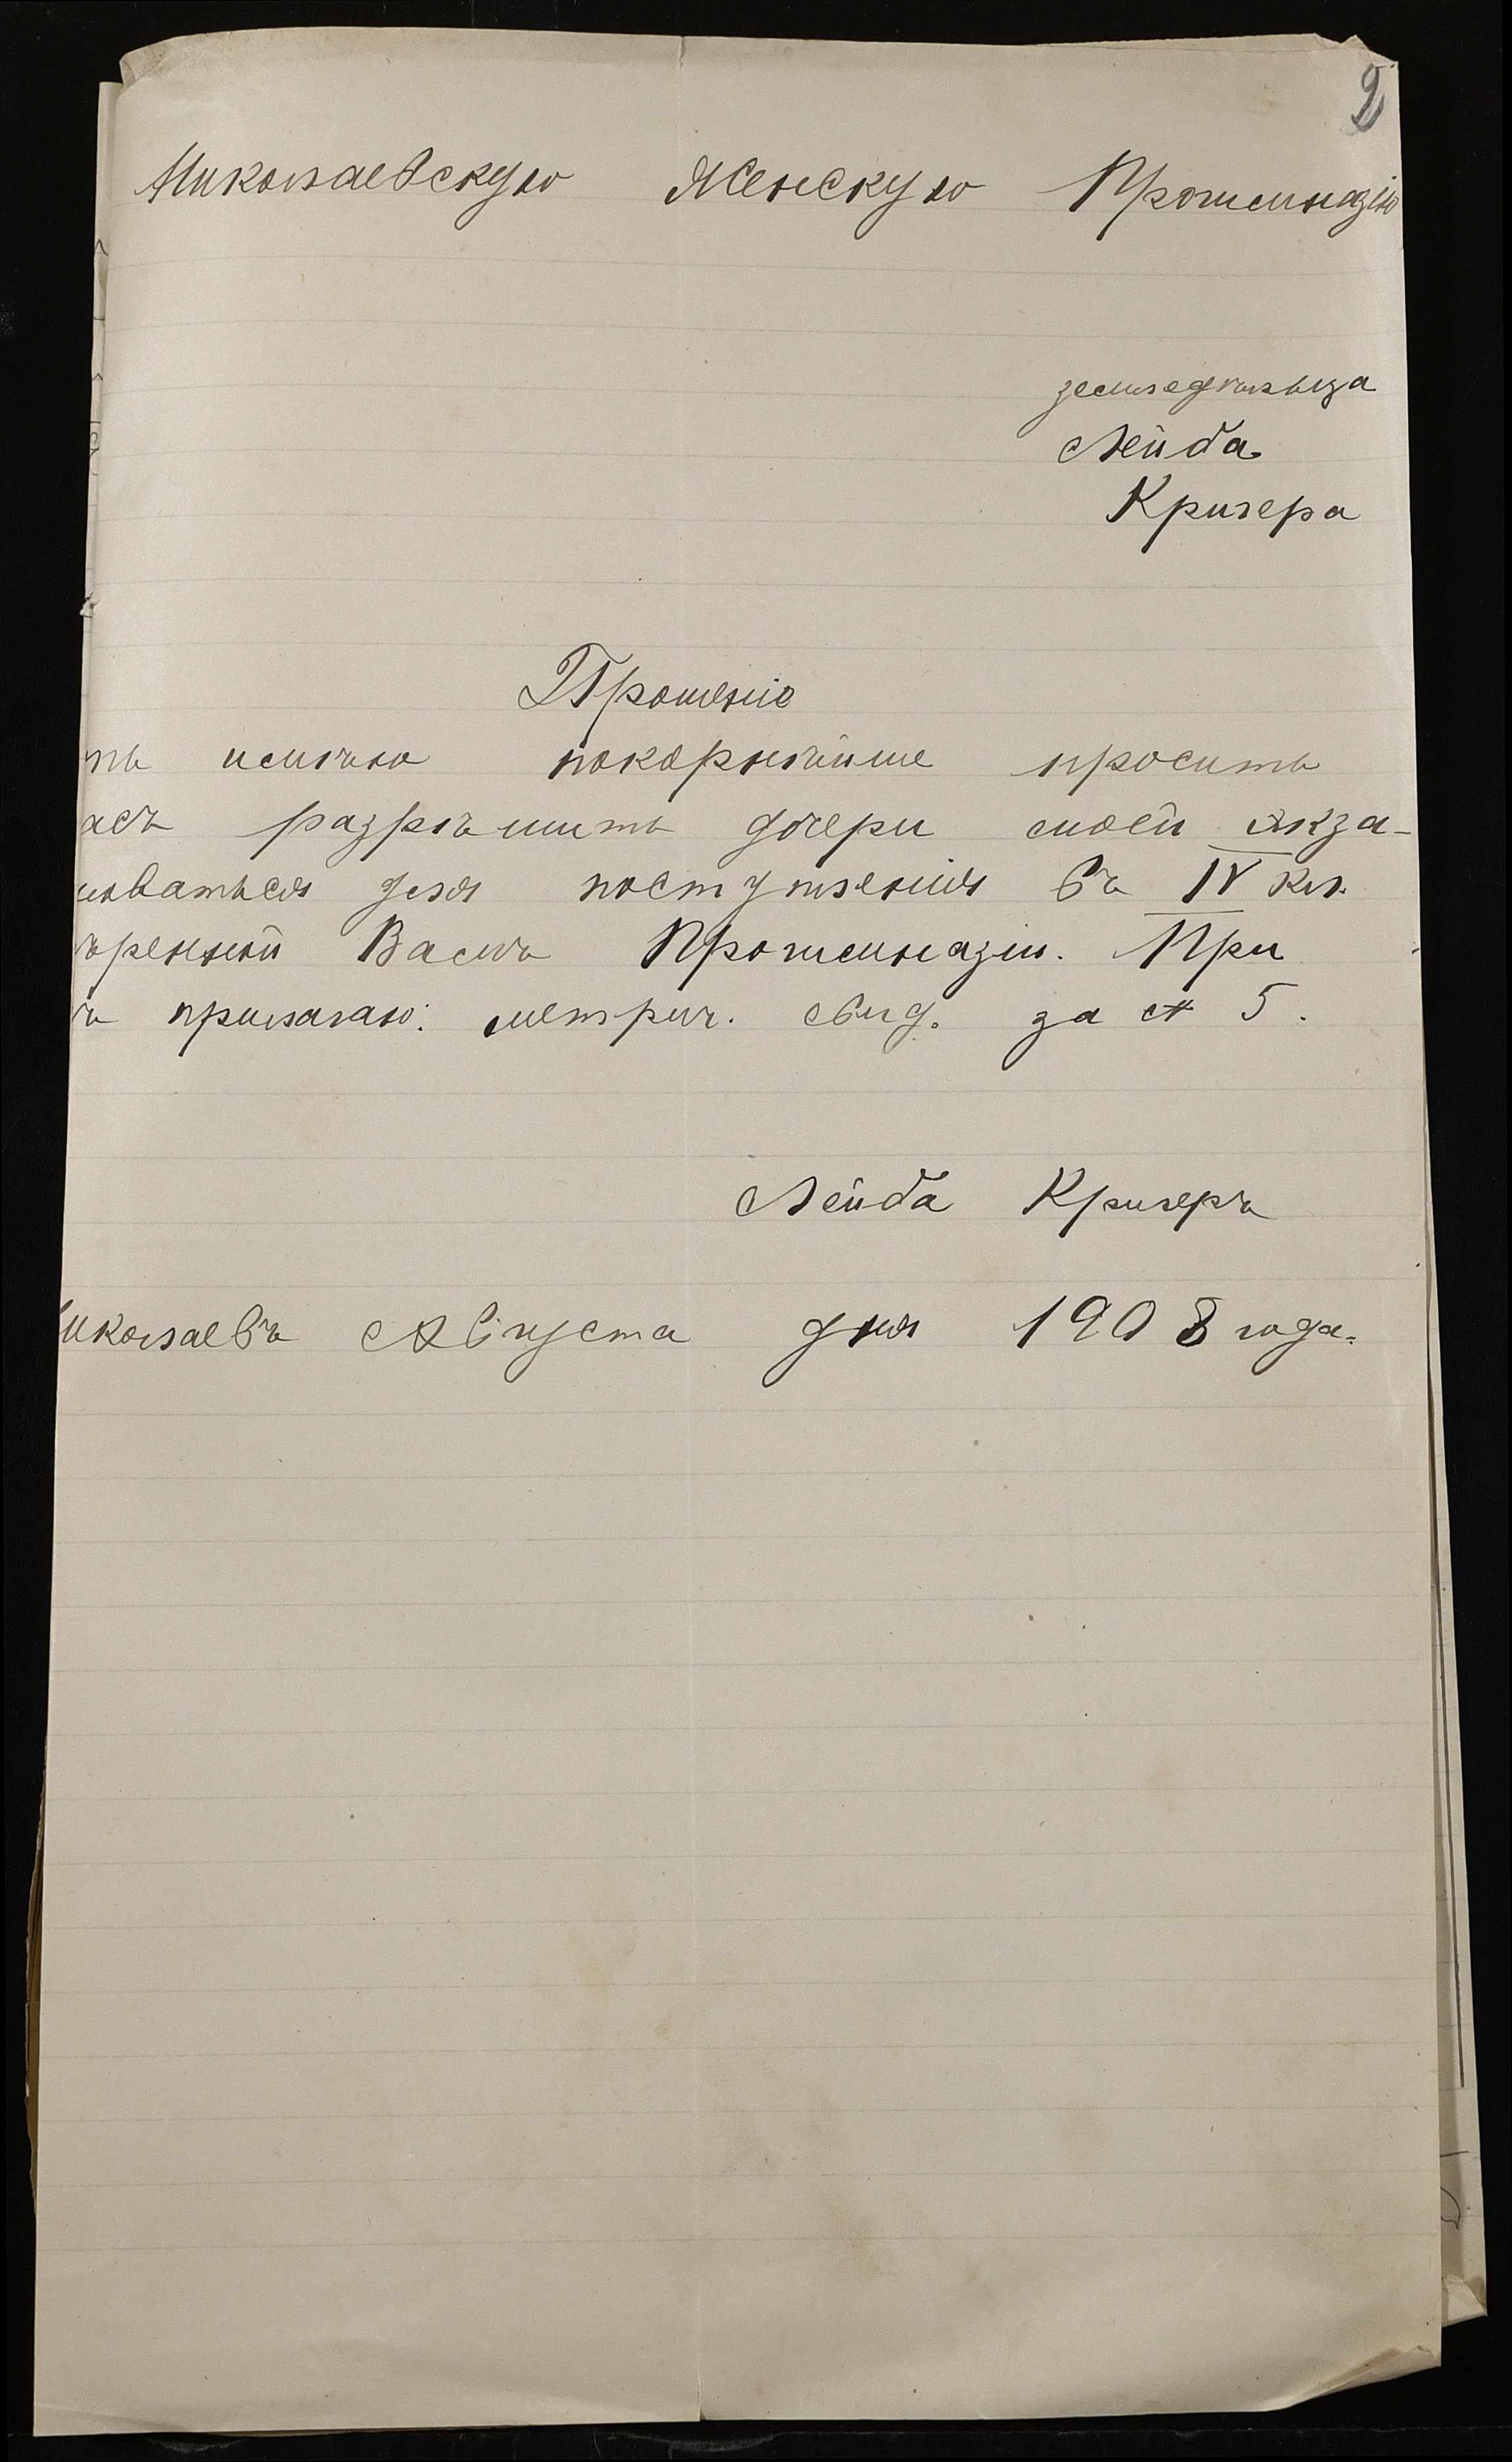 2
Николаевскую Женскую Прогимназію
земледѣльца
Лейба
Кригера
Прошеніе
ть имѣю покорнѣйше просить
асъ разрѣшить дочери моей экза-
новаться для поступленія въ IV кл.
ѣренной Вамъ Прогимназіи. При
ъ прилагаю: метрич. свид. за № 5.
Лейба Кригеръ
иколаевъ Августа дня 1908 года.